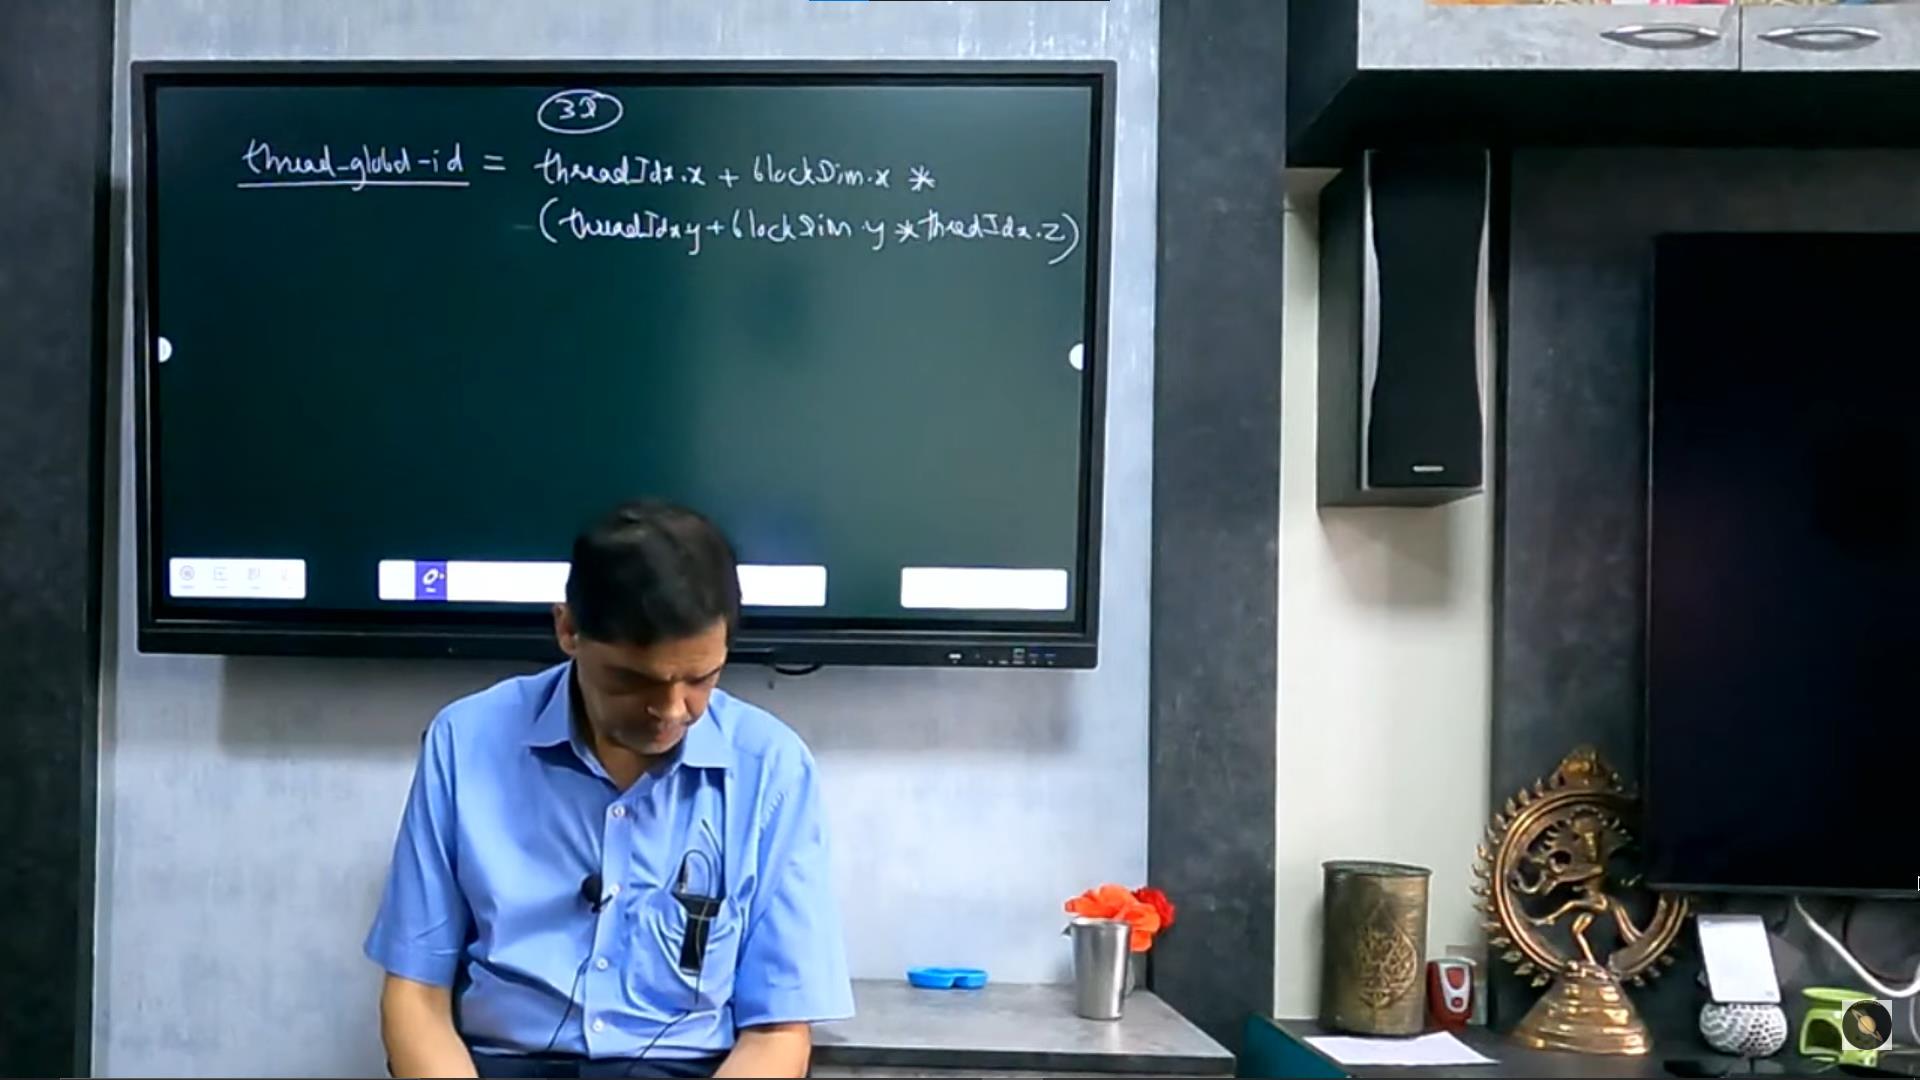 3D
thread-global-id = threadIdx.x + blockDim.x *
(threadIdx y + blockDim.y * threadIdx.z)